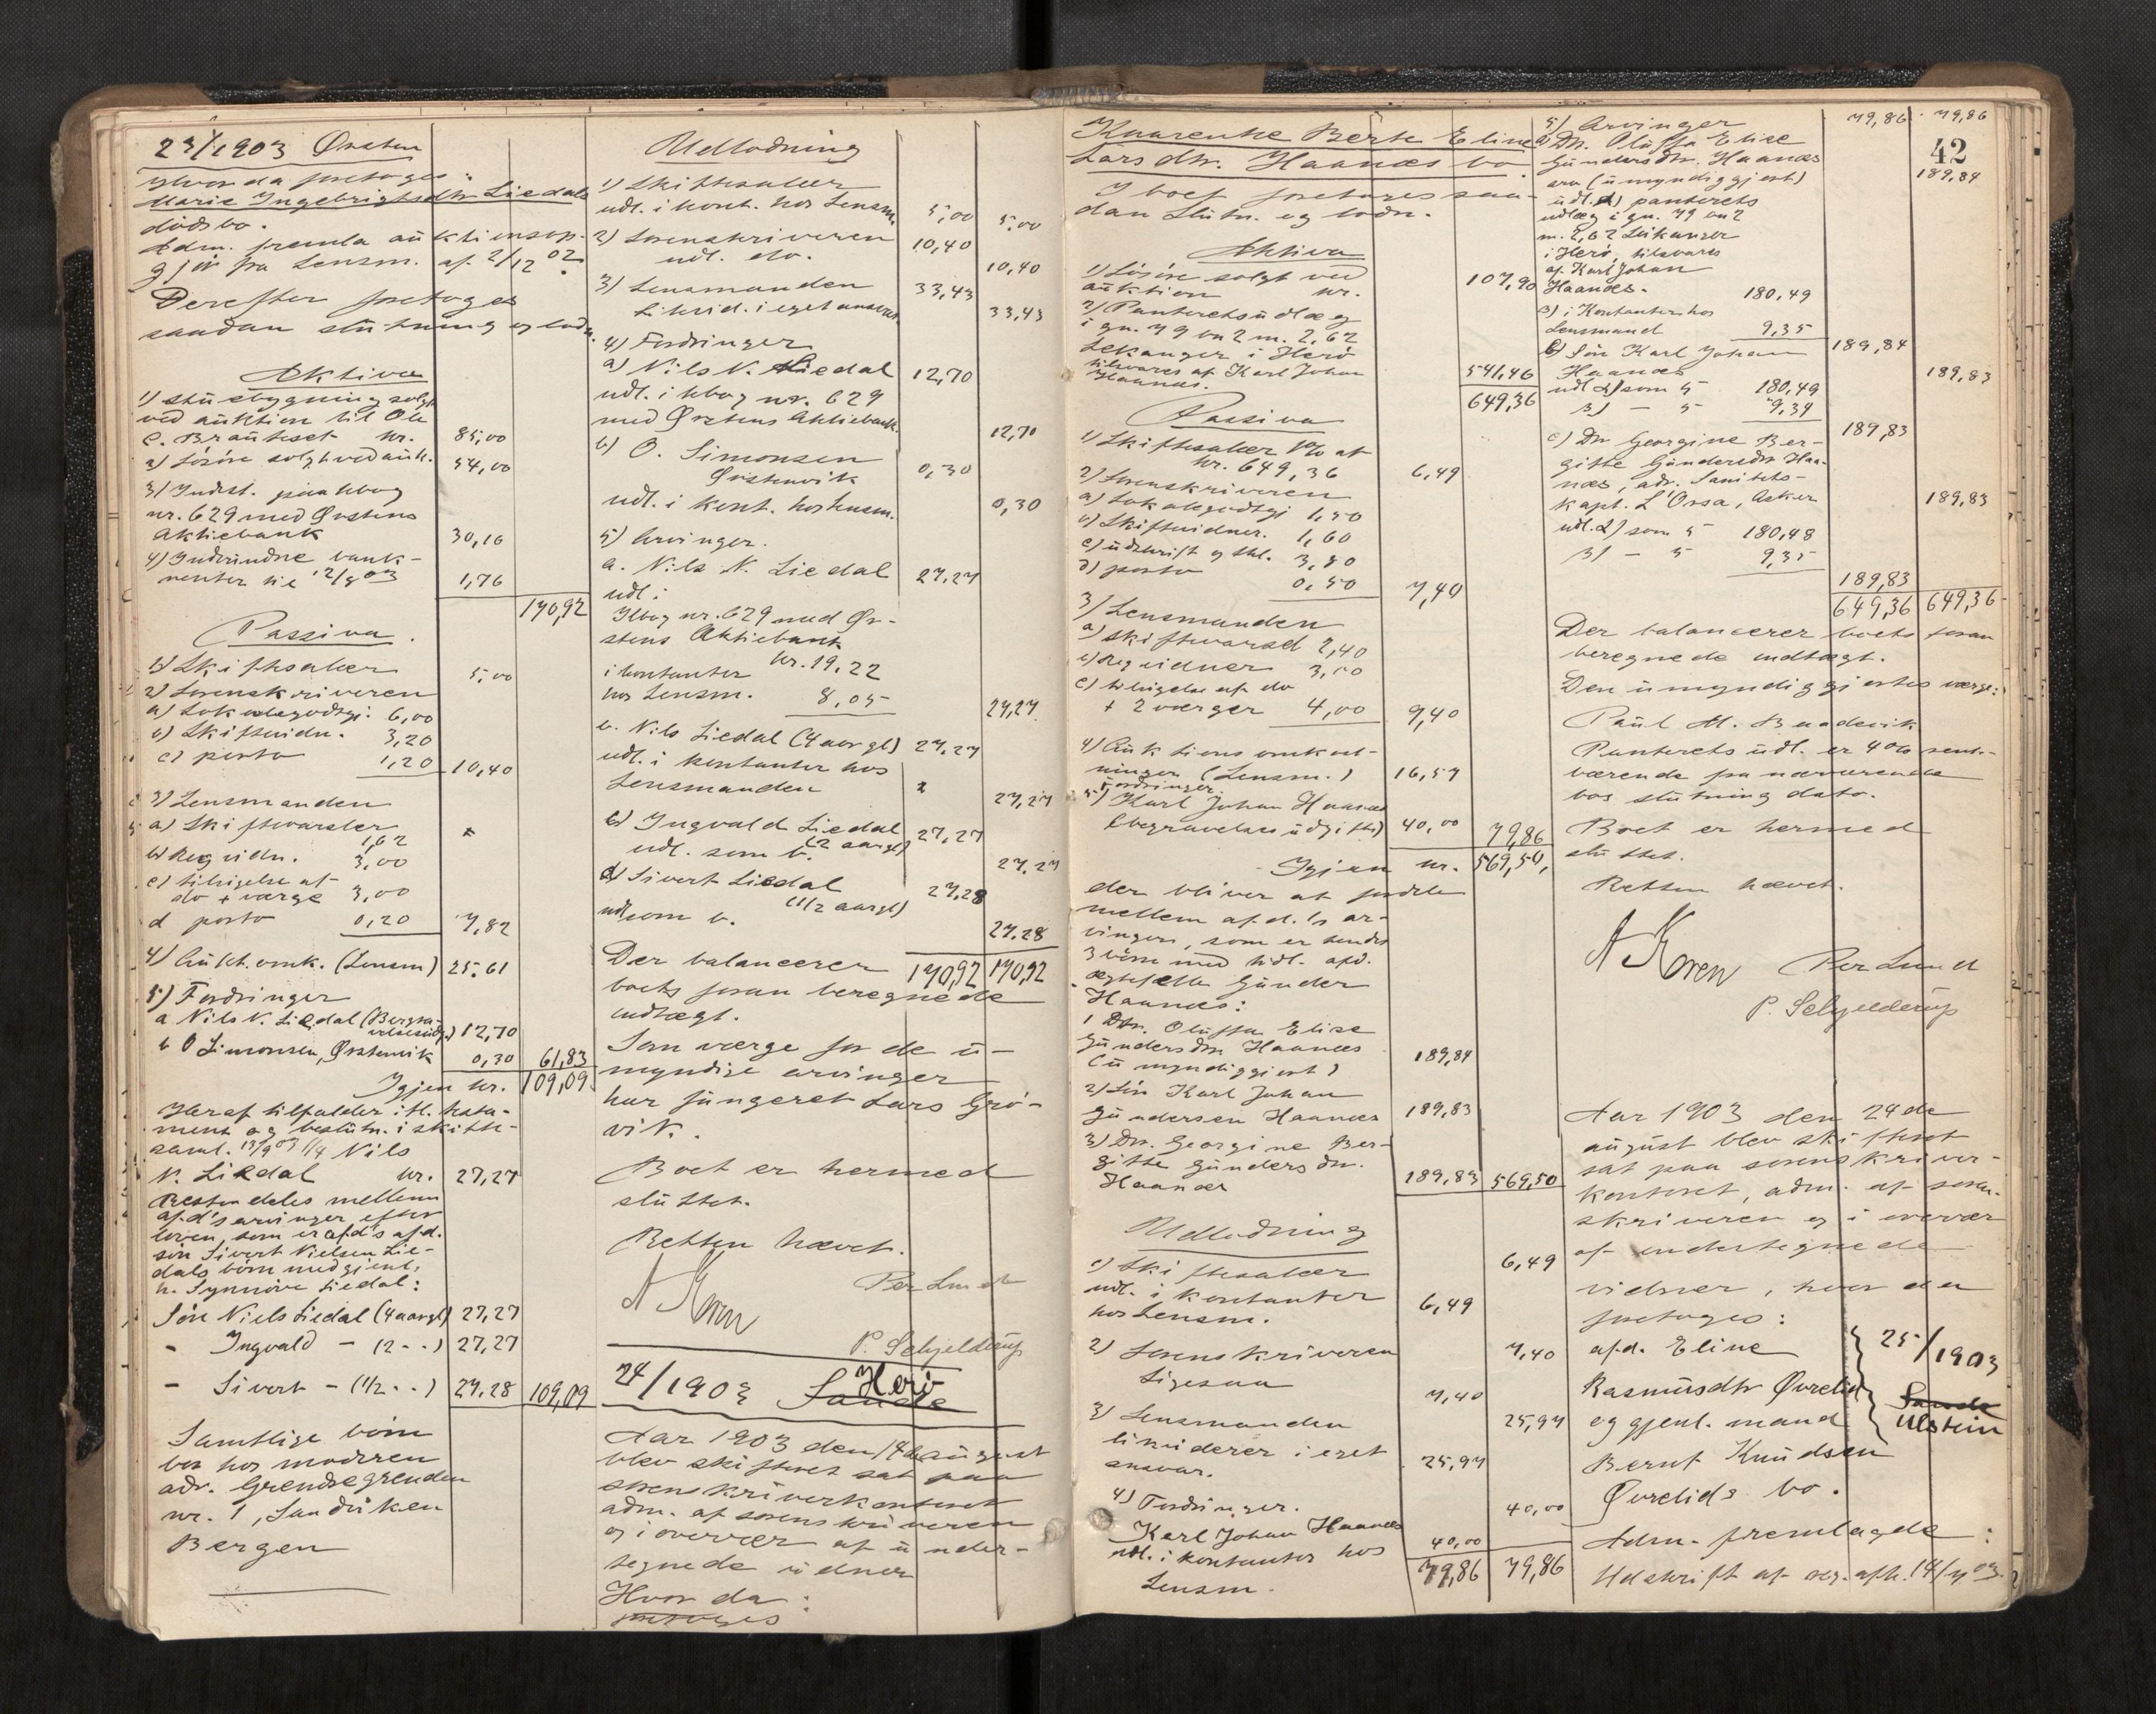 23/1903 Ørsten
Hvor da foretoges:
Marie Ingebrigtsdtr Liedals
dødsbo.
Adm. fremla auktionsop-
gjør fra Lensm. af 2/12 02.
Derefter foretoges
saadan slutning og lodn.
Aktiva
1) Stuebygning solgt
ved auktion til Ole
C. Brauteset kr. 85,00
2) Løsøre solgt ved auk. 54,00
3) Indest. paa kbog
nr. 629 med Ørstens
Aktiebank 30,16
4) Indvundne bank-
renter til 12/8 03 1,76
170,92
Passiva.
1) Skiftesaler 5,00
2) Sorenskriveren
a) Lokalegodtgj. 6,00
b) Skiftevidn. 3,20
c) porto 1,20 10,40
3) Lensmanden
a) Skiftevarsler 1,62
b) Reg vidn. 3,00
c) tilsigelse af
do + værge 3,00
d porto 0,20 7,82
4) Aukt. omk. (Lensm) 25,61
5) Fordringer
a Nils N. Liedal (Begra-
velsesudg.) 12,70
b O Simonsen, Ørstenvik 0,30 61,83
Igjen kr. 109,09
Heraf tilfalder ifl. testa-
ment og beslutn. i skifte-
saml. 13/9 03 1/4 Nils
N. Liedal kr. 27,27
Resten deles mellem
afd's arvinger efter
loven, som er afd's afd.
søn Sivert Nielsen Lie-
dals børn med gjenl.
h. Synnøve Liedal:
Søn Niels Liedal (4 aargl) 27,27
- Ingvald - (2 - -) 27,27
- Sivert - (1/2 - -) 27,28 109,09
Samtlige børn
bor hos moderen
adr. Grendsegrenden
nr. 1, Sandviken
Bergen
Udlodning
1) Skiftesaler
udl. i kont. hos Lensm. 5,00 5,00
2) Sorenskriveren 10,40
udl. do. 10,40
3) Lensmanden 33,43
Likvid. i eget ansvar. 33,43
4) Fordringer
a) Nils N. Liedal 12,70
udl. i kbog nr. 629
med Ørstens Aktiebank. 12,70
b) O. Simonsen
Ørstenvik 0,30
udl. i kont. hos lensm. 0,30
5) Arvinger.
a. Nils N. Liedal 27,27
udl:
Kbog nr. 629 med Ør-
stens Aktiebank
kr. 19,22
i kontanter
hos Lensm. 8,05
27,27
b. Nils Liedal (4 aargl) 27,27
udl. i kontanter hos
Lensmanden
27,27
c) Ingvald Liedal
(2 aargl) 27,27
udl. som b.
27,27
d) Sivert Liedal
(1/2 aargl) 27,28
udl som b.
27,28
Der balancerer 170,92 170,92
boets foran beregnede
indtægt.
Som værge for de u-
myndige arvinger
har fungeret Lars Grø-
vik.
Boet er hermed
sluttet.
Retten hævet.
A Koren Per Lund
P. Schjelderup
24/1903 Sande Herø
Aar 1903 den 14de august
blev skifteret sat paa
sorenskriverkontoret
adm. af sorenskriveren
og i overvær af under-
tegnede vidner
Hvor da:
foretoges
Knarenke Berte Eline
Larsdtr. Haanæs bo.
I boet foretoges saa-
dan slutn. og lodn.
Aktiva
1) Løsøre solgt ved
auktion kr. 107,90
2) Panteretsudlæg
i gn. 79 bn 2 m. 2,62
Lekanger i Herø
tilsvares af Karl Johan
Haanæs. 541,46
649,36
Passiva
1) Skiftesaler 1% af
kr. 649,36 6,49
2) Sorenskriveren
a) Lokalegodtgj 1,50
b) Skiftevidner. 1,60
c) udskrift og skl. 3,80
d) porto 0,50 7,40
3) Lensmanden
a) skiftevarsel 2,40
b) Reg vidner 3,00
c) tilsigelse af do
+ 2 værger 4,00 9,40
4) Auktionsomkost-
ninger (Lensm.) 16,57
Fordringer.
5) Karl Johan Haanæs
(begravelsesudgifter) 40,00 79,86
Igjen kr. 569,50,
der bliver at fordele
mellem afd.'s ar-
vinger, som er hendes
3 børn med tidl. afd.
ægtefelle Gunder
Haanæs:
1 Dtr. Oluffa Elise
Gundersdtr Haanæs 189,84
(umyndiggjort)
2) Søn Karl Johan
Gundersen Haanæs 189,83
3) Dtr. Georgine Ber-
gitte Gundersdtr.
Haanæs 189,83 569,50
Udlodning
1) Skiftesaler 6,49
udl. i kontanter
hos Lensm. 6,49
2) Sorenskriveren 7,40
Ligesaa 7,40
3) Lensmanden 25,97
likviderer i eget
ansvar. 25,97
4) Fordringer. 40,00
Karl Johan Haanæs 40,00
udl. i kontanter hos
Lensm. 79,86 79,86
79,86 79,86
42
5) Arvinger
a) Dtr. Oluffa Elise
Gundersdtr. Haanæs 189,84
arv (umyndiggjort)
udl. A) panterets
udlæg i gn. 79 bn 2
m. 2,62 Leikanger
i Herø, tilsvares
af Karl Johan
Haanæs. 180,49
B) i Kontanter hos
Lensmand 9,35 189,84
b) Søn Karl Johan
Haanæs 189,83
udl A) som 5 180,49
B) - 5 9,34
189,83
c) Dtr Georgine Ber-
gitte Gundersdtr Haa-
næs, adr. Sanitets-
kapt. L'Orsa, Asker 189,83
udl. A) som 5 180,48
B) - 5 9,35
189,83
649,36 649,36
Der balancerer boets foran
beregnede indtægt.
Den umyndiggjortes værge:
Paul M. Bendevik
Panterets udl. er 4% rente-
bærende fra nærværende
bos slutning dato.
Boet er hermed
sluttet.
Retten hævet.
A Koren Per Lund
P. Schjelderup
Aar 1903 den 24de
august blev skifteret
sat paa sorenskriver-
kontoret, adm. af soren-
skriveren og i overvær
af undertegnede
vidner, hvor da
foretoges:
afd. Eline 25/1903
Rasmusdtr Øvrelid Sande
og gjenl. mand Ulstein
Bernt Knudsen
Øvrelids bo.
Adm. fremlagde:
Udskrift af reg. afh. 14/7 03.